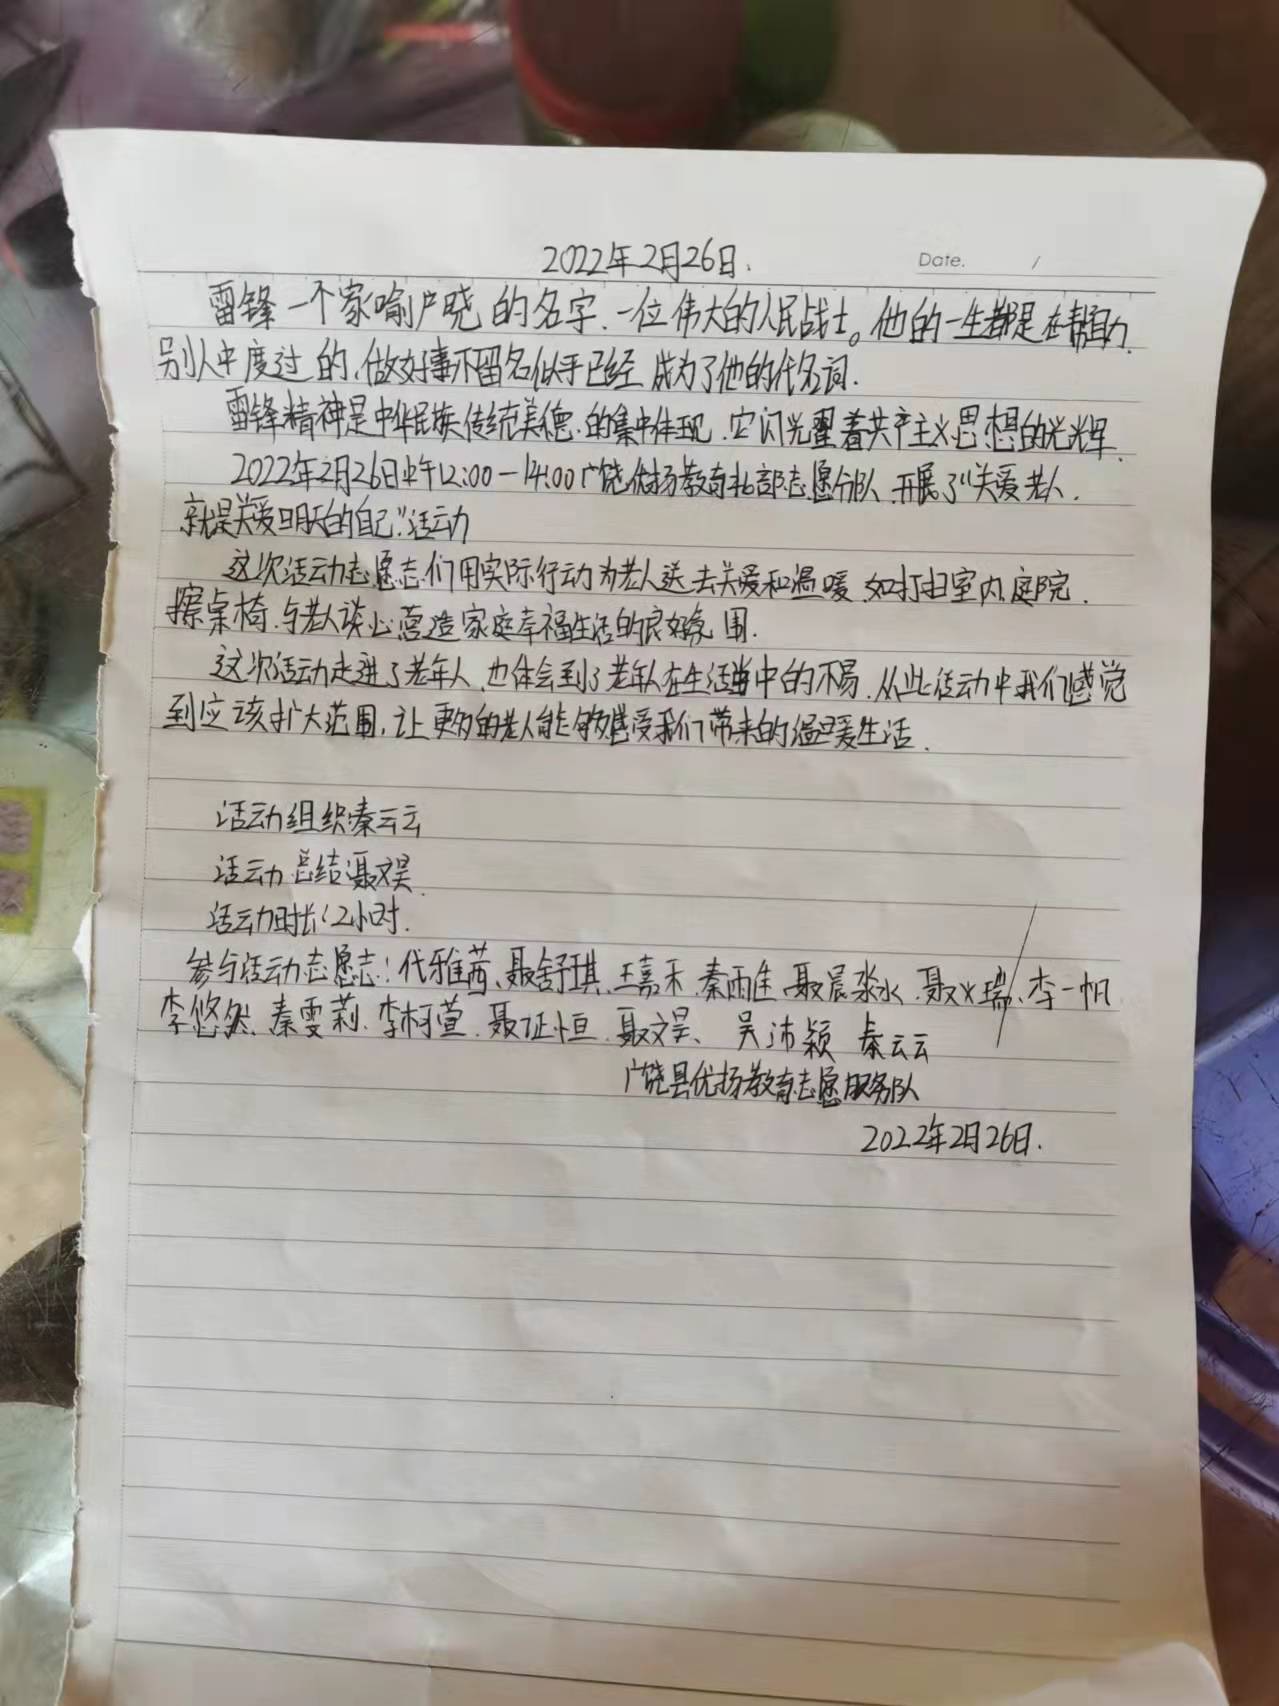 2022年2月26日.
Date. /
雷锋一个家喻户晓的名字、一位伟大的人民战士。他的一生都是在帮助
别人中度过的,做好事不留名似乎已经成为了他的代名词.
雷锋精神是中华民族传统美德.的集中体现.它闪光翟着共产主义思想的光辉.
2022年2月26日中午12:00-14:00广饶优扬教育北部志愿分队开展了"关爱老人.
就是关爱明天的自己"活动
这次活动志愿志们用实际行动为老人送去关爱和温暖,如打扫室内,庭院.
擦桌椅.与老人谈心营造家庭幸福生活的良好氛围.
这次活动走进了老年人.也体会到了老年人在生活当中的不易.从此活动中我们感觉
到应该扩大范围,让更多的老人能够感受我们带来的温暖生活.
活动组织:秦云云
活动总结:聂文昊.
活动时长:2小时.
参与活动志愿志:代雅茜、聂舒琪.王嘉禾.秦雨佳.聂晨淼.聂义瑞、李一帆
李悠然.秦雯莉.李柯萱.聂证恒.聂文昊、吴沛颖 秦云云
广饶县优扬教育志愿服务队
2022年2月26日.